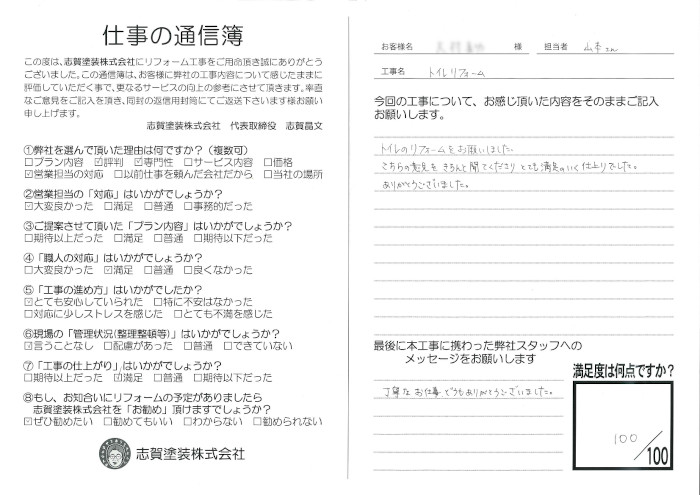 仕事の通信簿
この度は、志賀塗装株式会社にリフォーム工事をご用命頂き誠にありがとう
ございました。この通信簿は、お客様に弊社の工事内容について感じたままに
評価していただく事で、更なるサービスの向上の参考にさせて頂きます。率直
なご意見をご記入を頂き、同封の返信用封筒にてご返送下さいます様お願い
申し上げます。
志賀塗装株式会社 代表取締役 志賀昌文
①弊社を選んで頂いた理由は何ですか？（複数可）
□プラン内容 ☑評判 ☑専門性 □サービス内容 □価格
☑営業担当の対応 □以前仕事を頼んだ会社だから □当社の場所
②営業担当の「対応」はいかがでしょうか？
☑大変良かった □満足 □普通 □事務的だった
③ご提案させて頂いた「プラン内容」はいかがでしょうか？
□期待以上だった □満足 □普通 □期待以下だった
④「職人の対応」はいかがでしょうか？
□大変良かった ☑満足 □普通 □良くなかった
⑤「工事の進め方」はいかがでしたか？
☑とても安心していられた □特に不安はなかった
□対応に少しストレスを感じた □とても不満を感じた
⑥現場の「管理状況(整理整頓等)」はいかがでしょうか？
☑言うことなし □配慮があった □普通 □できていない
⑦「工事の仕上がり」はいかがでしょうか？
□期待以上だった ☑満足 □普通 □期待以下だった
⑧もし、お知合いにリフォームの予定がありましたら
志賀塗装株式会社を「お勧め」頂けますでしょうか？
☑ぜひ勧めたい □勧めてもいい □わからない □勧められない
志賀塗装株式会社
お客様名 様 担当者 山本さん
工事名 トイレリフォーム
今回の工事について、お感じ頂いた内容をそのままご記入
お願いします。
トイレのリフォームをお願いしました。
こちらの意見をきちんと聞いてくださり とても満足のいく仕上りでした。
ありがとうございました。
最後に本工事に携わった弊社スタッフへの
メッセージをお願いします
丁寧なお仕事どうもありがとうございました。
満足度は何点ですか？
100/100